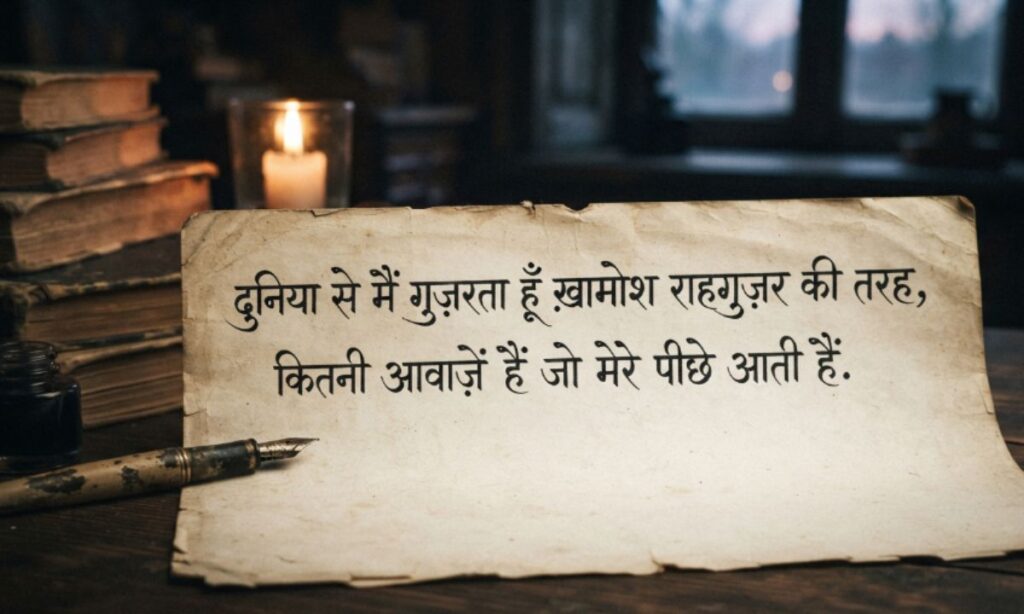 दुनिया से मैं गुज़रता हूँ ख़ामोश राहगुज़र की तरह,
कितनी आवाज़ें हैं जो मेरे पीछे आती हैं.